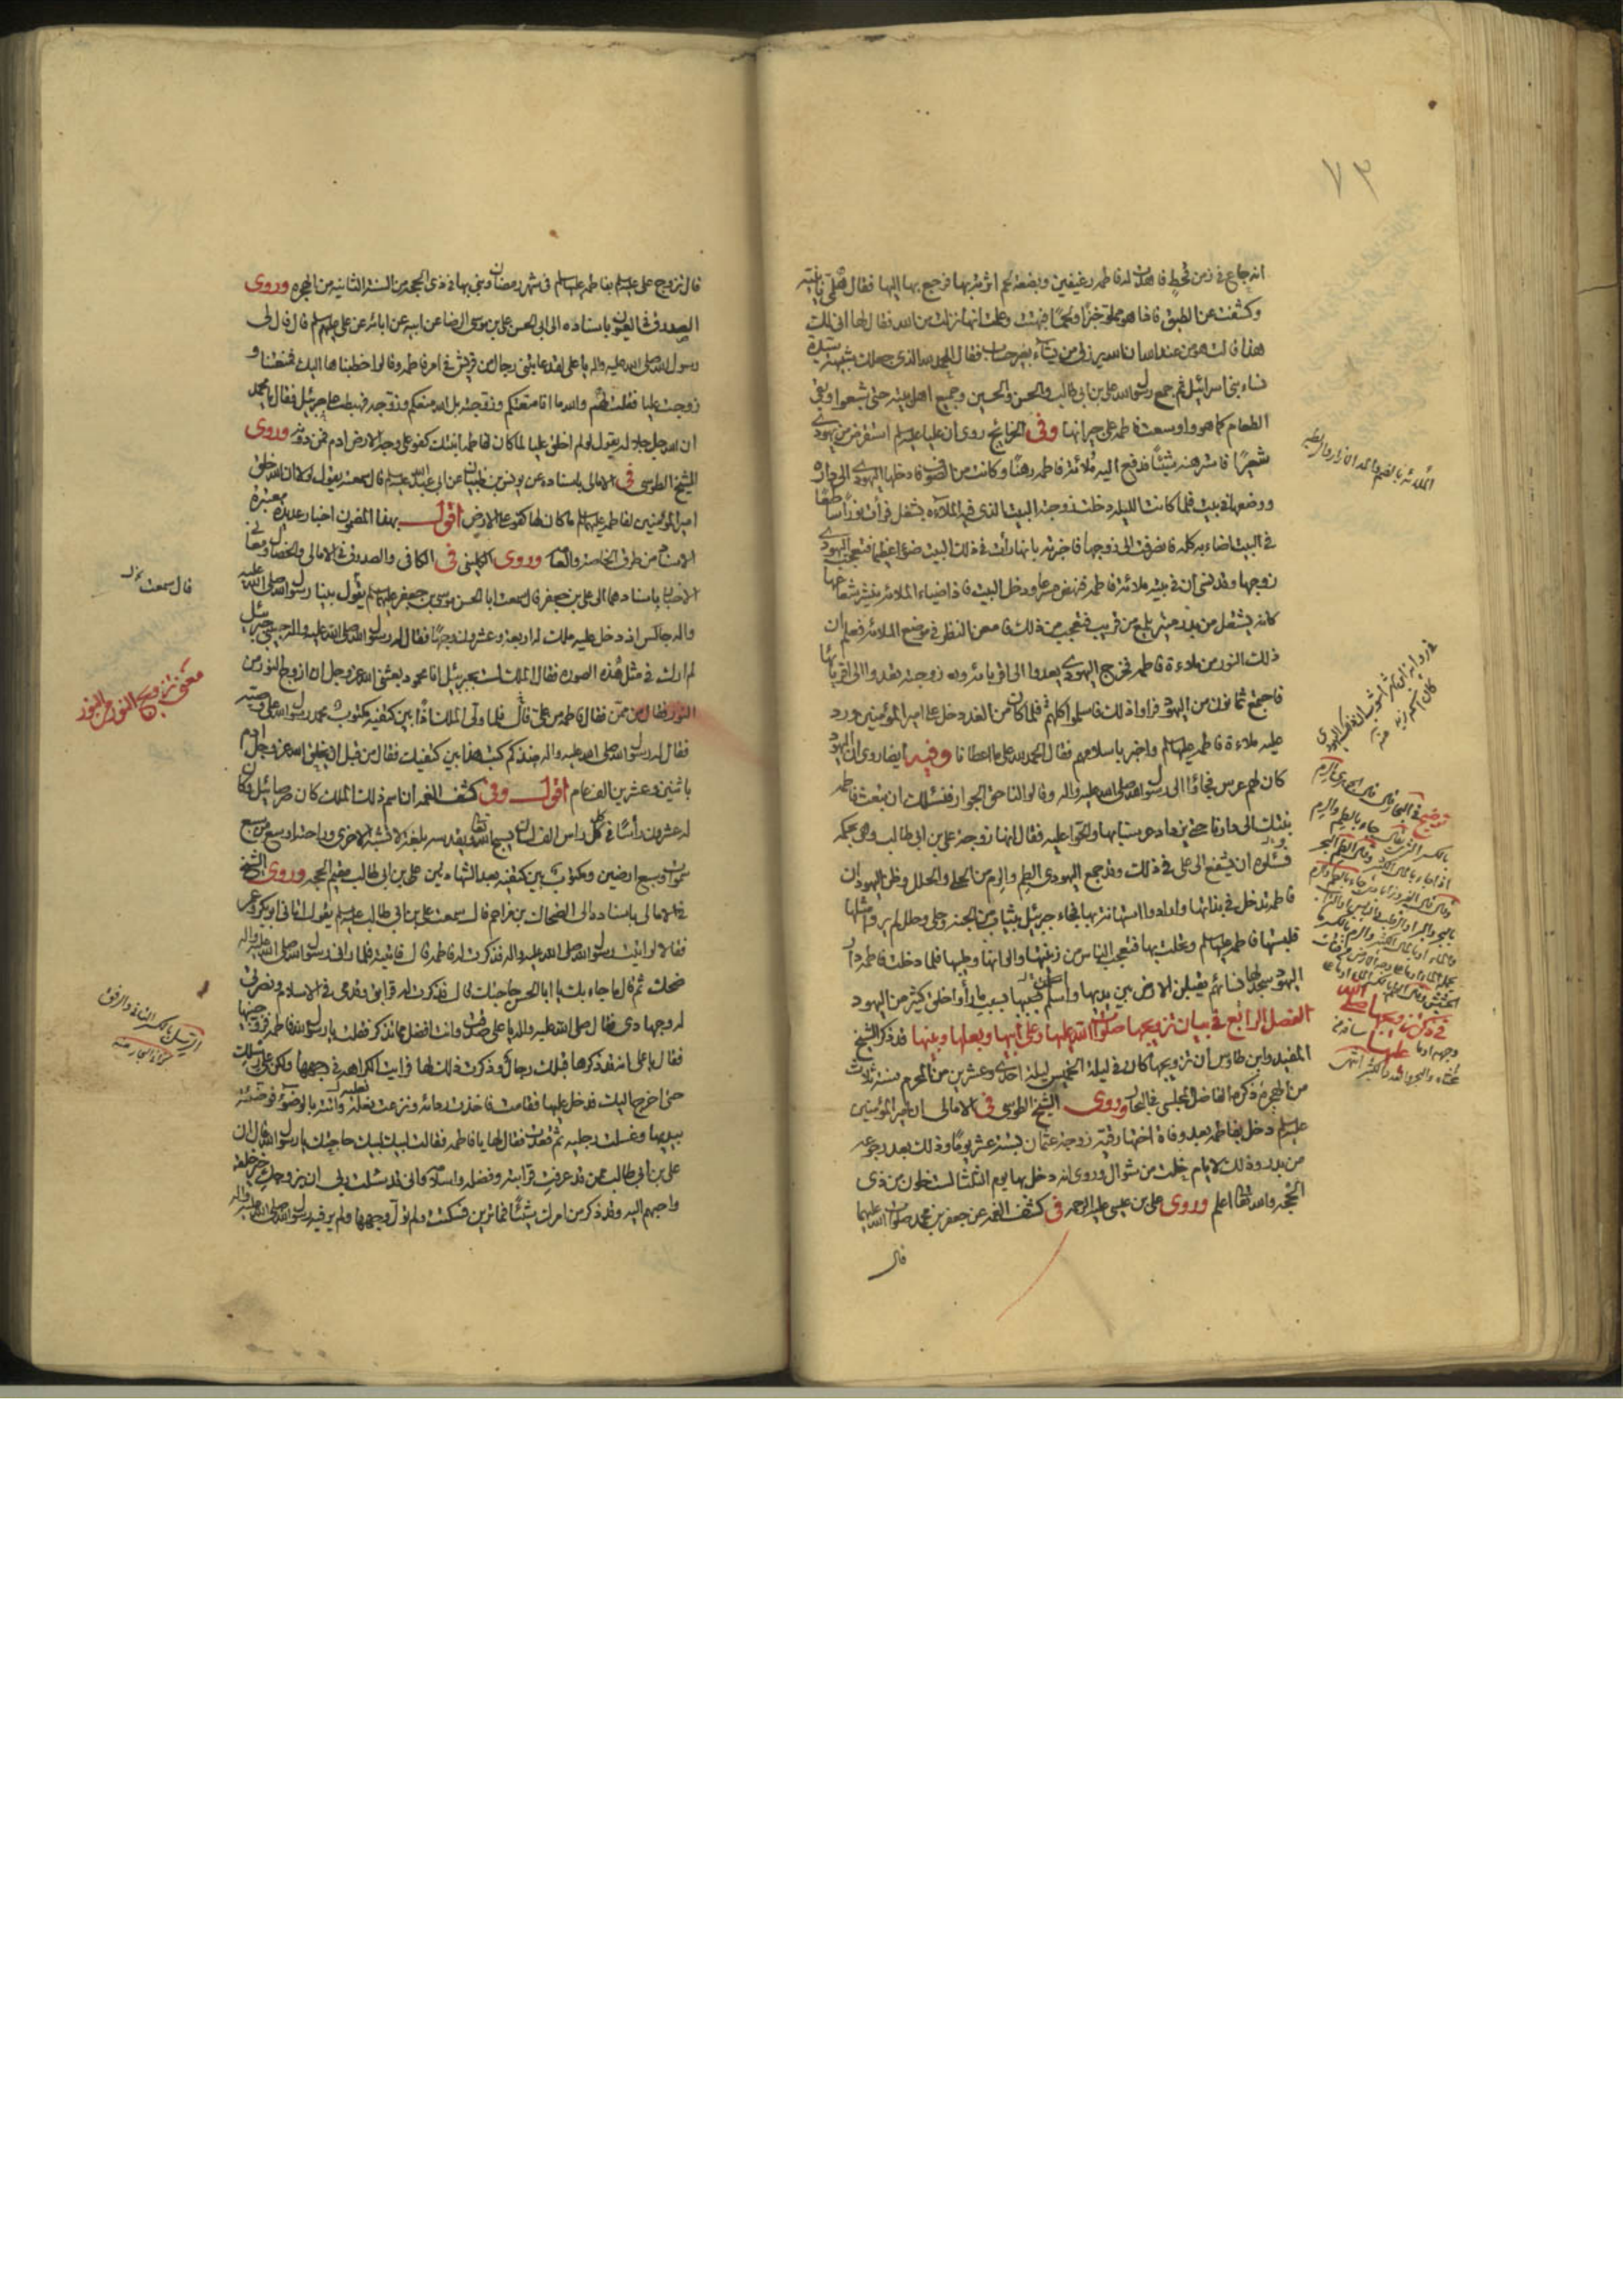 ٧٣
انه جاع في زمن قحط فاهدت له فاطمه رغيفين وبضعة لحم اثرته بها فرجع بها اليها فقال هلمي يا بنية
وكشفت عن الطبق فاذا هو مملو خبزا ولحما فبهتت وعلمت انها نزلت من الله فقال لها انى لك
هذا قالت هو من عند الله ان الله يرزق من يشاء بغير حساب فقال الحمد لله الذي جعلك شبيهة بسيدة
نساء بني اسرائيل ثم جمع رسول الله علي بن ابي طالب والحسن والحسين وجميع اهل بيته حتى شبعوا وبقي
الطعام كما هو واوسعت فاطمه على جيرانها وفي الخرايج روى ان عليا عليه السلم استقرض من يهودي
شعيرا فاسترهنه شيئا فدفع اليه ملائة فاطمه رهنا وكانت من الصوف فادخلها اليهودي الى داره
ووضعها في بيت فلما كانت الليله دخلت زوجته البيت الذي فيه الملاءه بشغل فرأت نورا ساطعا
في البيت اضاء به كله فانصرفت الى زوجها فاخبرته بانها رأت في ذلك البيت ضوءا عظيما فتعجب اليهودي
زوجها وقد نسى ان في بيته ملائة فاطمه فنهض مسرعا ودخل البيت فاذا ضياء الملائه ينشر شعاعها
كانه يشتعل من بدر منير يلمع من قريب فتعجب من ذلك فامعن النظر في موضع الملائه فعلم ان
ذلك النور من ملاءة فاطمه فخرج اليهودي يعدوا الى اقربائه وزوجته تعدوا الى اقربائها
فاجتمع ثمانون من اليهود فراوا ذلك فاسلموا كلهم فلما كان من الغد دخل على امير المؤمنين ورد
عليه ملاءة فاطمه عليها السلم واخبر باسلامهم فقال الحمد لله على ما اعطانا وفيه ايضا روى ان اليهود
كان لهم عرس فجاؤا الى رسول الله صلى الله عليه واله وقالوا لنا حق الجوار فنسئلك ان تبعث فاطمه
بنتك الى دارنا حتى يزداد عرسنا بها والحوا عليه فقال انها زوجة علي بن ابي طالب وهي بحكمه
فسئلوه ان يشفع الى علي في ذلك وقد جمع اليهودي الطم والرم من الحلي والحلل وظن اليهود ان
فاطمه تدخل في بذلتها وارادوا استهانة بها فجاء جبرئيل بثياب من الجنه وحلي وحلل لم يروا مثلها
فلبستها فاطمه عليها السلم وتحلت بها فتعجب الناس من زينتها والوانها وطيبها فلما دخلت فاطمه دار
اليهود سجد لها نسائهم يقبلن الارض بين يديها واسلم بسبب ما رأوا خلق كثير من اليهود
الفصل الرابع في بيان تزويجها صلوات الله عليها وعلى ابيها وبعلها وبنيها قد ذكر الشيخ
المفيد وابن طاوس ان تزويجها كان في ليلة الخميس ليلة احدى وعشرين من المحرم سنة ثلاث
من الهجره ذكره الفاضل المجلسي في البحار وروى الشيخ الطوسي في الامالى ان امير المؤمنين
عليه السلم دخل بفاطمه بعد وفاة اختها رقيه زوجة عثمان بستة عشر يوما وذلك بعد رجوعه
من بدر وذلك لايام خلت من شوال وروى انه دخل بها يوم الثلثا لست خلون من ذي
الحجه والله تعالى اعلم وروى علي بن عيسى عليه الرحمه في كشف الغمه عن جعفر بن محمد صلوات الله عليهما
قال
في ذكر تزويجها صلى الله عليها
قال تزوج علي عليه السلم بفاطمه عليها السلم في شهر رمضان وبنى بها في ذي الحجه من السنة الثانيه من الهجره وروى
الصدوق في العيون باسناده الى ابي الحسن علي بن موسى الرضا عن ابيه عن ابائه عن علي عليهم السلم قال قال لي
رسول الله صلى الله عليه واله يا علي لقد عاتبني رجال من قريش في امر فاطمه وقالوا خطبناها اليك فمنعتنا و
زوجت عليا فقلت لهم والله ما انا منعتكم وزوجته بل الله منعكم وزوجه فهبط علي جبرئيل فقال يا محمد
ان الله جل جلاله يقول لو لم اخلق عليا لما كان لفاطمه ابنتك كفو على وجه الارض ادم فمن دونه وروى
الشيخ الطوسي في الامالى باسناده عن يونس بن ظبيان عن ابي عبد الله عليه السلم قال سمعته يقول لولا ان الله خلق
امير المؤمنين لفاطمه عليهما السلم ما كان لها كفو على الارض اقول بهذا المضمون اخبار عديدة معتبرة
الاسناد من طرق الخاصه والعامه وروى الكليني في الكافى والصدوق في الامالى والخصال ومعاني
الاخبار باسنادهما الى علي بن جعفر قال سمعت ابا الحسن موسى بن جعفر عليهما السلم يقول بينا رسول الله صلى الله عليه
واله جالس اذ دخل عليه ملك له اربعة وعشرون وجها فقال له رسول الله صلى الله عليه واله حبيبي جبرئيل
لم ارك في مثل هذه الصوره فقال الملك لست بجبرئيل انا محمود بعثني الله عز وجل ان ازوج النور من
النور فقال من ممن فقال فاطمه من علي قال فلما ولى الملك اذا بين كتفيه مكتوب محمد رسول الله علي وصيه
فقال له رسول الله صلى الله عليه واله منذ كم كتب هذا بين كتفيك فقال من قبل ان يخلق الله عز وجل ادم
باثنين وعشرين الف عام اقول وفي كشف الغمه ان اسم ذلك الملك كان صرصائيل وكان
له عشرون رأسا في كل راس الف لسان يسبح الله تعالى ويقدسه بلغة لا تشبه الاخرى وراحته اوسع من سبع
سموات وسبع ارضين ومكتوب بين كتفيه بعد الشهادتين علي بن ابي طالب مقيم الحجه وروى الشيخ
في الامالى باسناده الى الضحاك بن مزاحم قال سمعت علي بن ابي طالب عليه السلم يقول اتاني ابو بكر وعمر
فقالا لو اتيت رسول الله صلى الله عليه واله فذكرت له فاطمه قال فاتيته فلما راني رسول الله صلى الله عليه واله
ضحك ثم قال ما جاء بك يا ابا الحسن حاجتك قال فذكرت له قرابتي وقدمي في الاسلام ونصرتي
له وجهادي فقال صلى الله عليه واله يا علي صدقت وانت افضل مما تذكر فقلت يا رسول الله فاطمه تزوجنيها
فقال يا علي انه قد ذكرها قبلك رجال وذكرت ذلك لها فرايت الكراهه في وجهها ولكن على رسلك
حتى اخرج اليك فدخل عليها فقامت فاخذت ردائه ونزعت نعليه واتته بالوضوء فوضئته
بيديها وغسلت رجليه ثم قعدت فقال لها يا فاطمه فقالت لبيك لبيك حاجتك يا رسول الله قال ان
علي بن ابي طالب ممن قد عرفت قرابته وفضله واسلامه واني قد سئلت ربي ان يزوجك خير خلقه
واحبهم اليه وقد ذكر من امرك شيئا فما ترين فسكتت ولم تول وجهها ولم ير فيه رسول الله صلى الله عليه واله
قال سمعت
معنى تزويج النور من النور